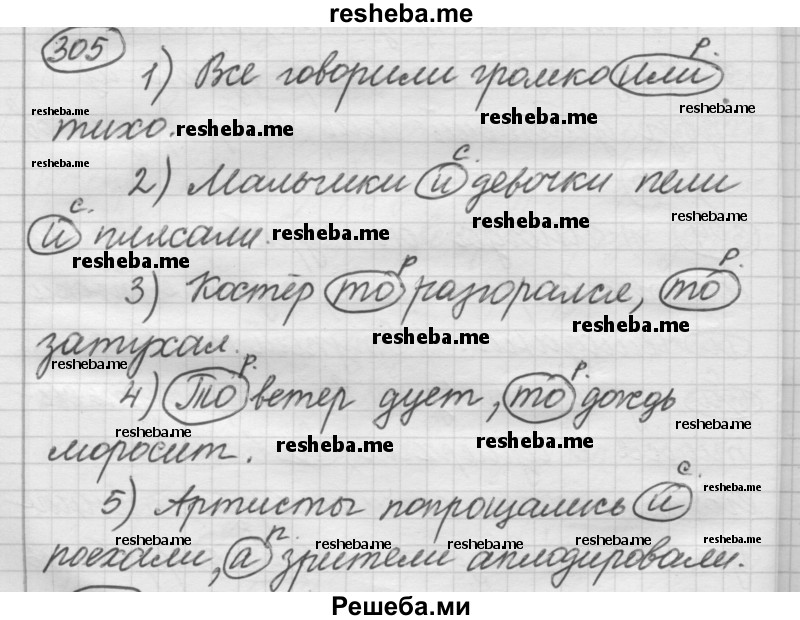 resheba.me
305
1) Все говорили громко или р.
resheba.me resheba.me resheba.me
тихо. resheba.me
resheba.me
2) Мальчики и с. девочки пели
resheba.me resheba.me
и с. плясали. resheba.me
resheba.me
3) Костёр то р разгорался, то р.
resheba.me resheba.me
затухал.
resheba.me
4) То р. ветер дует, то р. дождь
resheba.me resheba.me
моросит. resheba.me resheba.me
5) Артисты попрощались и с.
resheba.me
поехали, а п. зрители аплодировали.
resheba.me resheba.me resheba.me resheba.me resheba.me
Решеба.ми